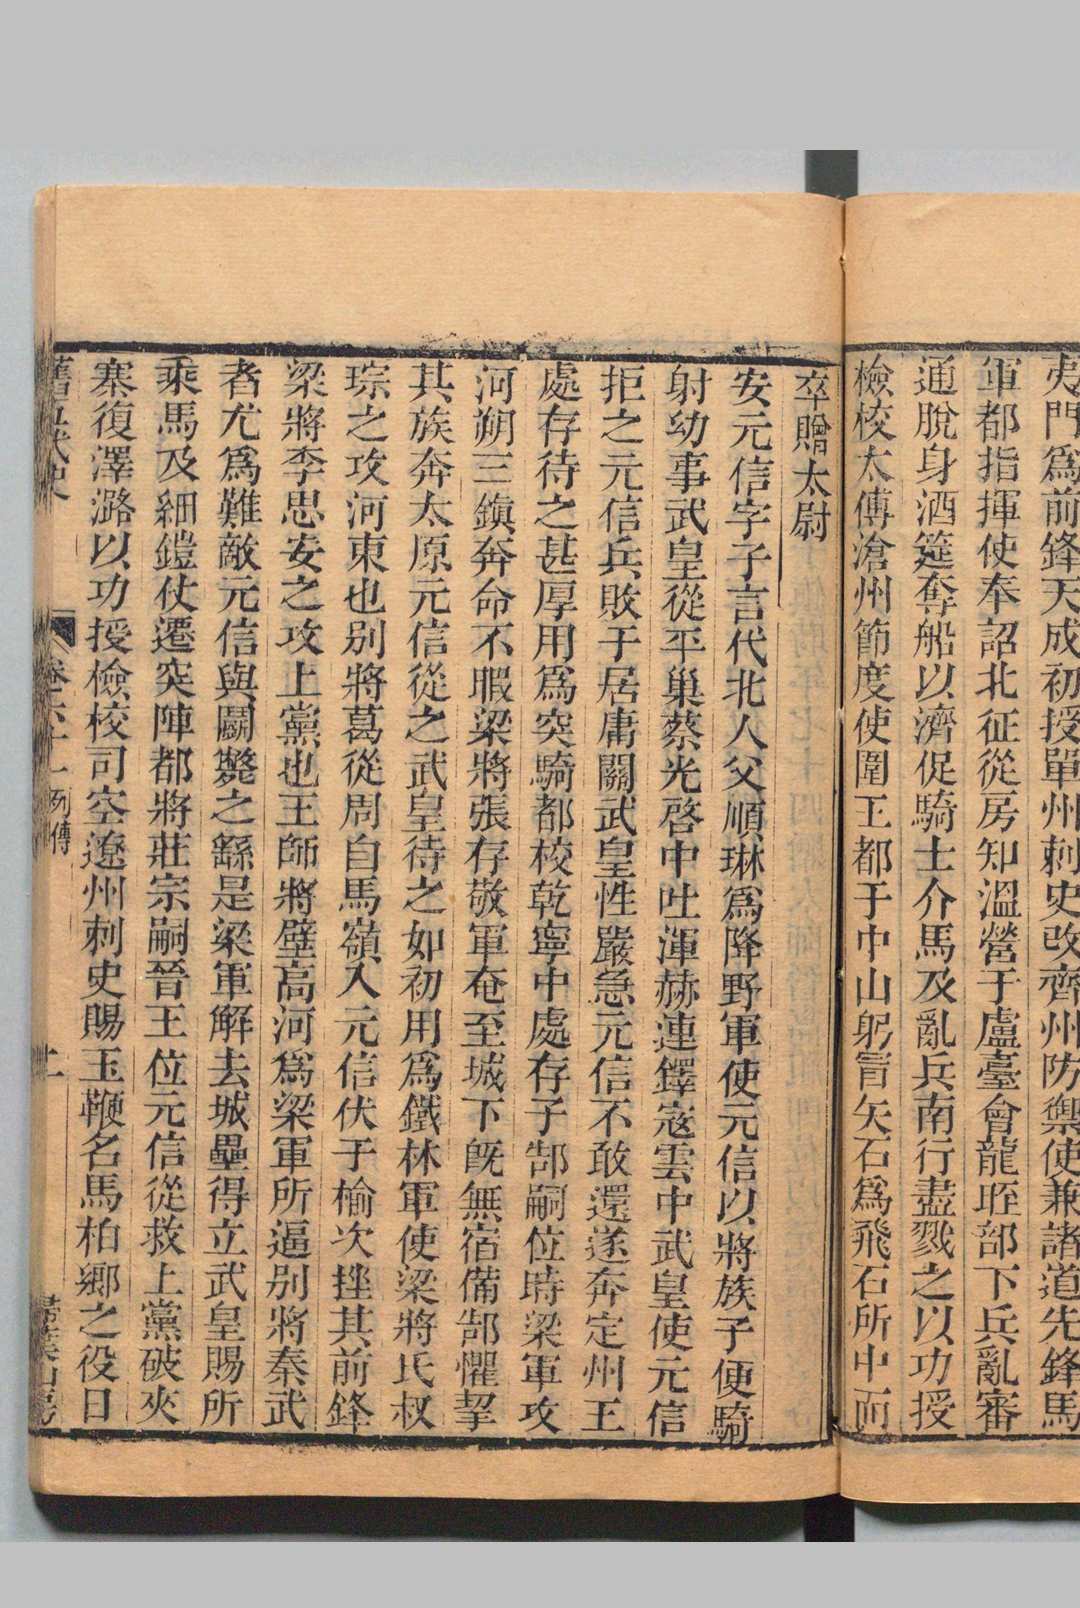 夷門爲前鋒天成初授單州刺史改齊州防禦使兼諸道先鋒馬
軍都指揮使奉詔北征從房知溫營于盧臺會龍晊部下兵亂審
通脫身酒筵奪船以濟促騎士介馬及亂兵南行盡戮之以功授
檢校太傅滄州節度使圍王都于中山躬冐矢石爲飛石所中而
卒贈太尉
安元信字子言代北人父順琳爲降野軍使元信以將族子便騎
射幼事武皇從平巢蔡光啓中吐渾赫連鐸寇雲中武皇使元信
拒之元信兵敗于居庸關武皇性嚴急元信不敢還遂奔定州王
處存待之甚厚用爲突騎都校乾寧中處存子郜嗣位時梁軍攻
河朔三鎭奔命不暇梁將張存敬軍奄至城下旣無宿備郜懼挈
其族奔太原元信從之武皇待之如初用爲鐵林軍使梁將氏叔
琮之攻河東也別將葛從周自馬嶺入元信伏于榆次挫其前鋒
梁將李思安之攻上黨也王師將壁高河爲梁軍所逼別將秦武
者尤爲難敵元信與鬭斃之繇是梁軍解去城壘得立武皇賜所
乘馬及細鎧仗遷突陣都將莊宗嗣晉王位元信從救上黨破夾
寨復澤潞以功授檢校司空遼州刺史賜玉鞭名馬柏鄉之役日
舊五代史 卷六十一列傳 十一 掃葉山房